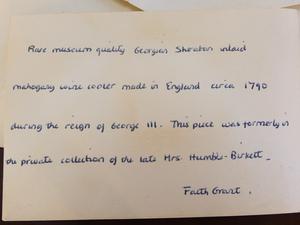 Rare museum quality Georgian Sheraton inlaid
mahogany wine cooler made in England circa 1790
during the reign of George III. This piece was formerly in
the private collection of the late Mrs. Humble-Birkett.
Faith Grant.